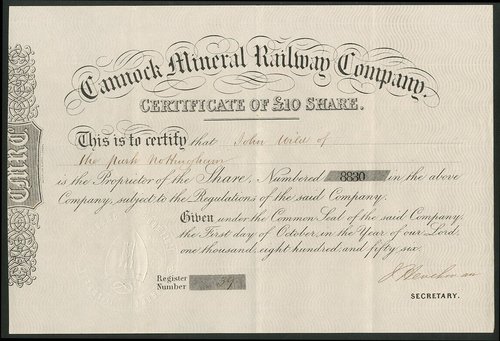 Cannock Mineral Railway Company.
CERTIFICATE OF £10 SHARE.
This is to certify that John Wild of
the Park Nottingham
is the Proprietor of the Share, Numbered 8830 in the above
Company, subject to the Regulations of the said Company.
Given under the Common Seal of the said Company
the First day of October, in the Year of our Lord,
one thousand, eight hundred, and fifty six.
Register
Number 39
SECRETARY.
C.M.R.C.